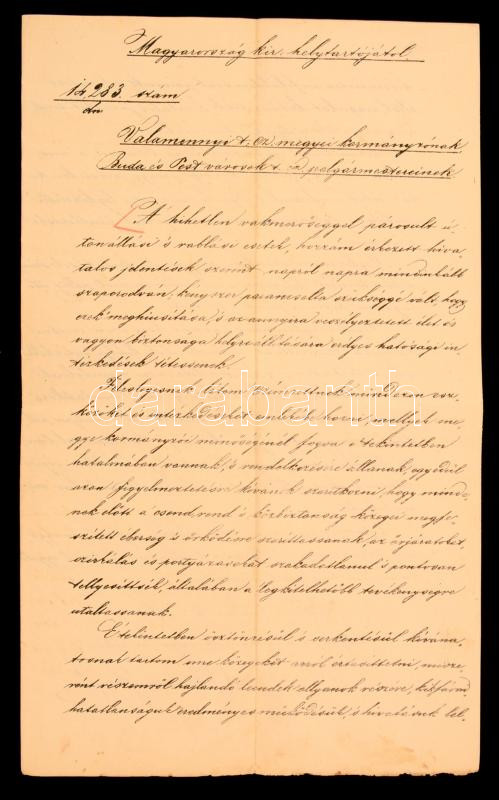 Magyarország kir. helytartójától.
14283. szám
eln
Valamennyi t. cz. megyei kormányzónak
Buda és Pest városok t. cz. polgármestereinek
A hihetlen vakmerőséggel párosult ú-
tonállási 's rablási esetek, hozzám érkezett hiva-
talos jelentések szerint napról napra mindinkább
szaporodván, kényszer parancsolta szükséggé vált, hogy
ezek meghiusítása, 's az annyira veszélyeztetett élet és
vagyon biztonsága helyreállítására erélyes hatósági in-
tézkedések tétessenek.
Felesleges
mindazon esz-
közöket és intézkedéseket
hozni, mellyek me-
gye kormányzói minőségénél fogva e tekintetben
hatalmában vannak, 's rendelkezésére állanak, egyedül
azon figyelmeztetésre kívánok szorítkozni, hogy minde-
nek előtt a csend, rend 's közbiztonság közegei megfe-
szített éberség 's őrködésre szoríttassanak, az őrjáratokat,
czirkálás és portyázásokat szakadatlanul 's pontosan
tellyesítsék, általában a legkitelhetőbb tevékenységre
utaltassanak.
E tekintetben ösztönzésül 's serkentésül kívána-
tosnak tartom eme közegeket arról értesíttetni, misze-
rént részemről hajlandó leendek ollyanok részére, kik fárad-
hatatlanságuk eredményes működésük, 's hivatásuk tel-
darabanth